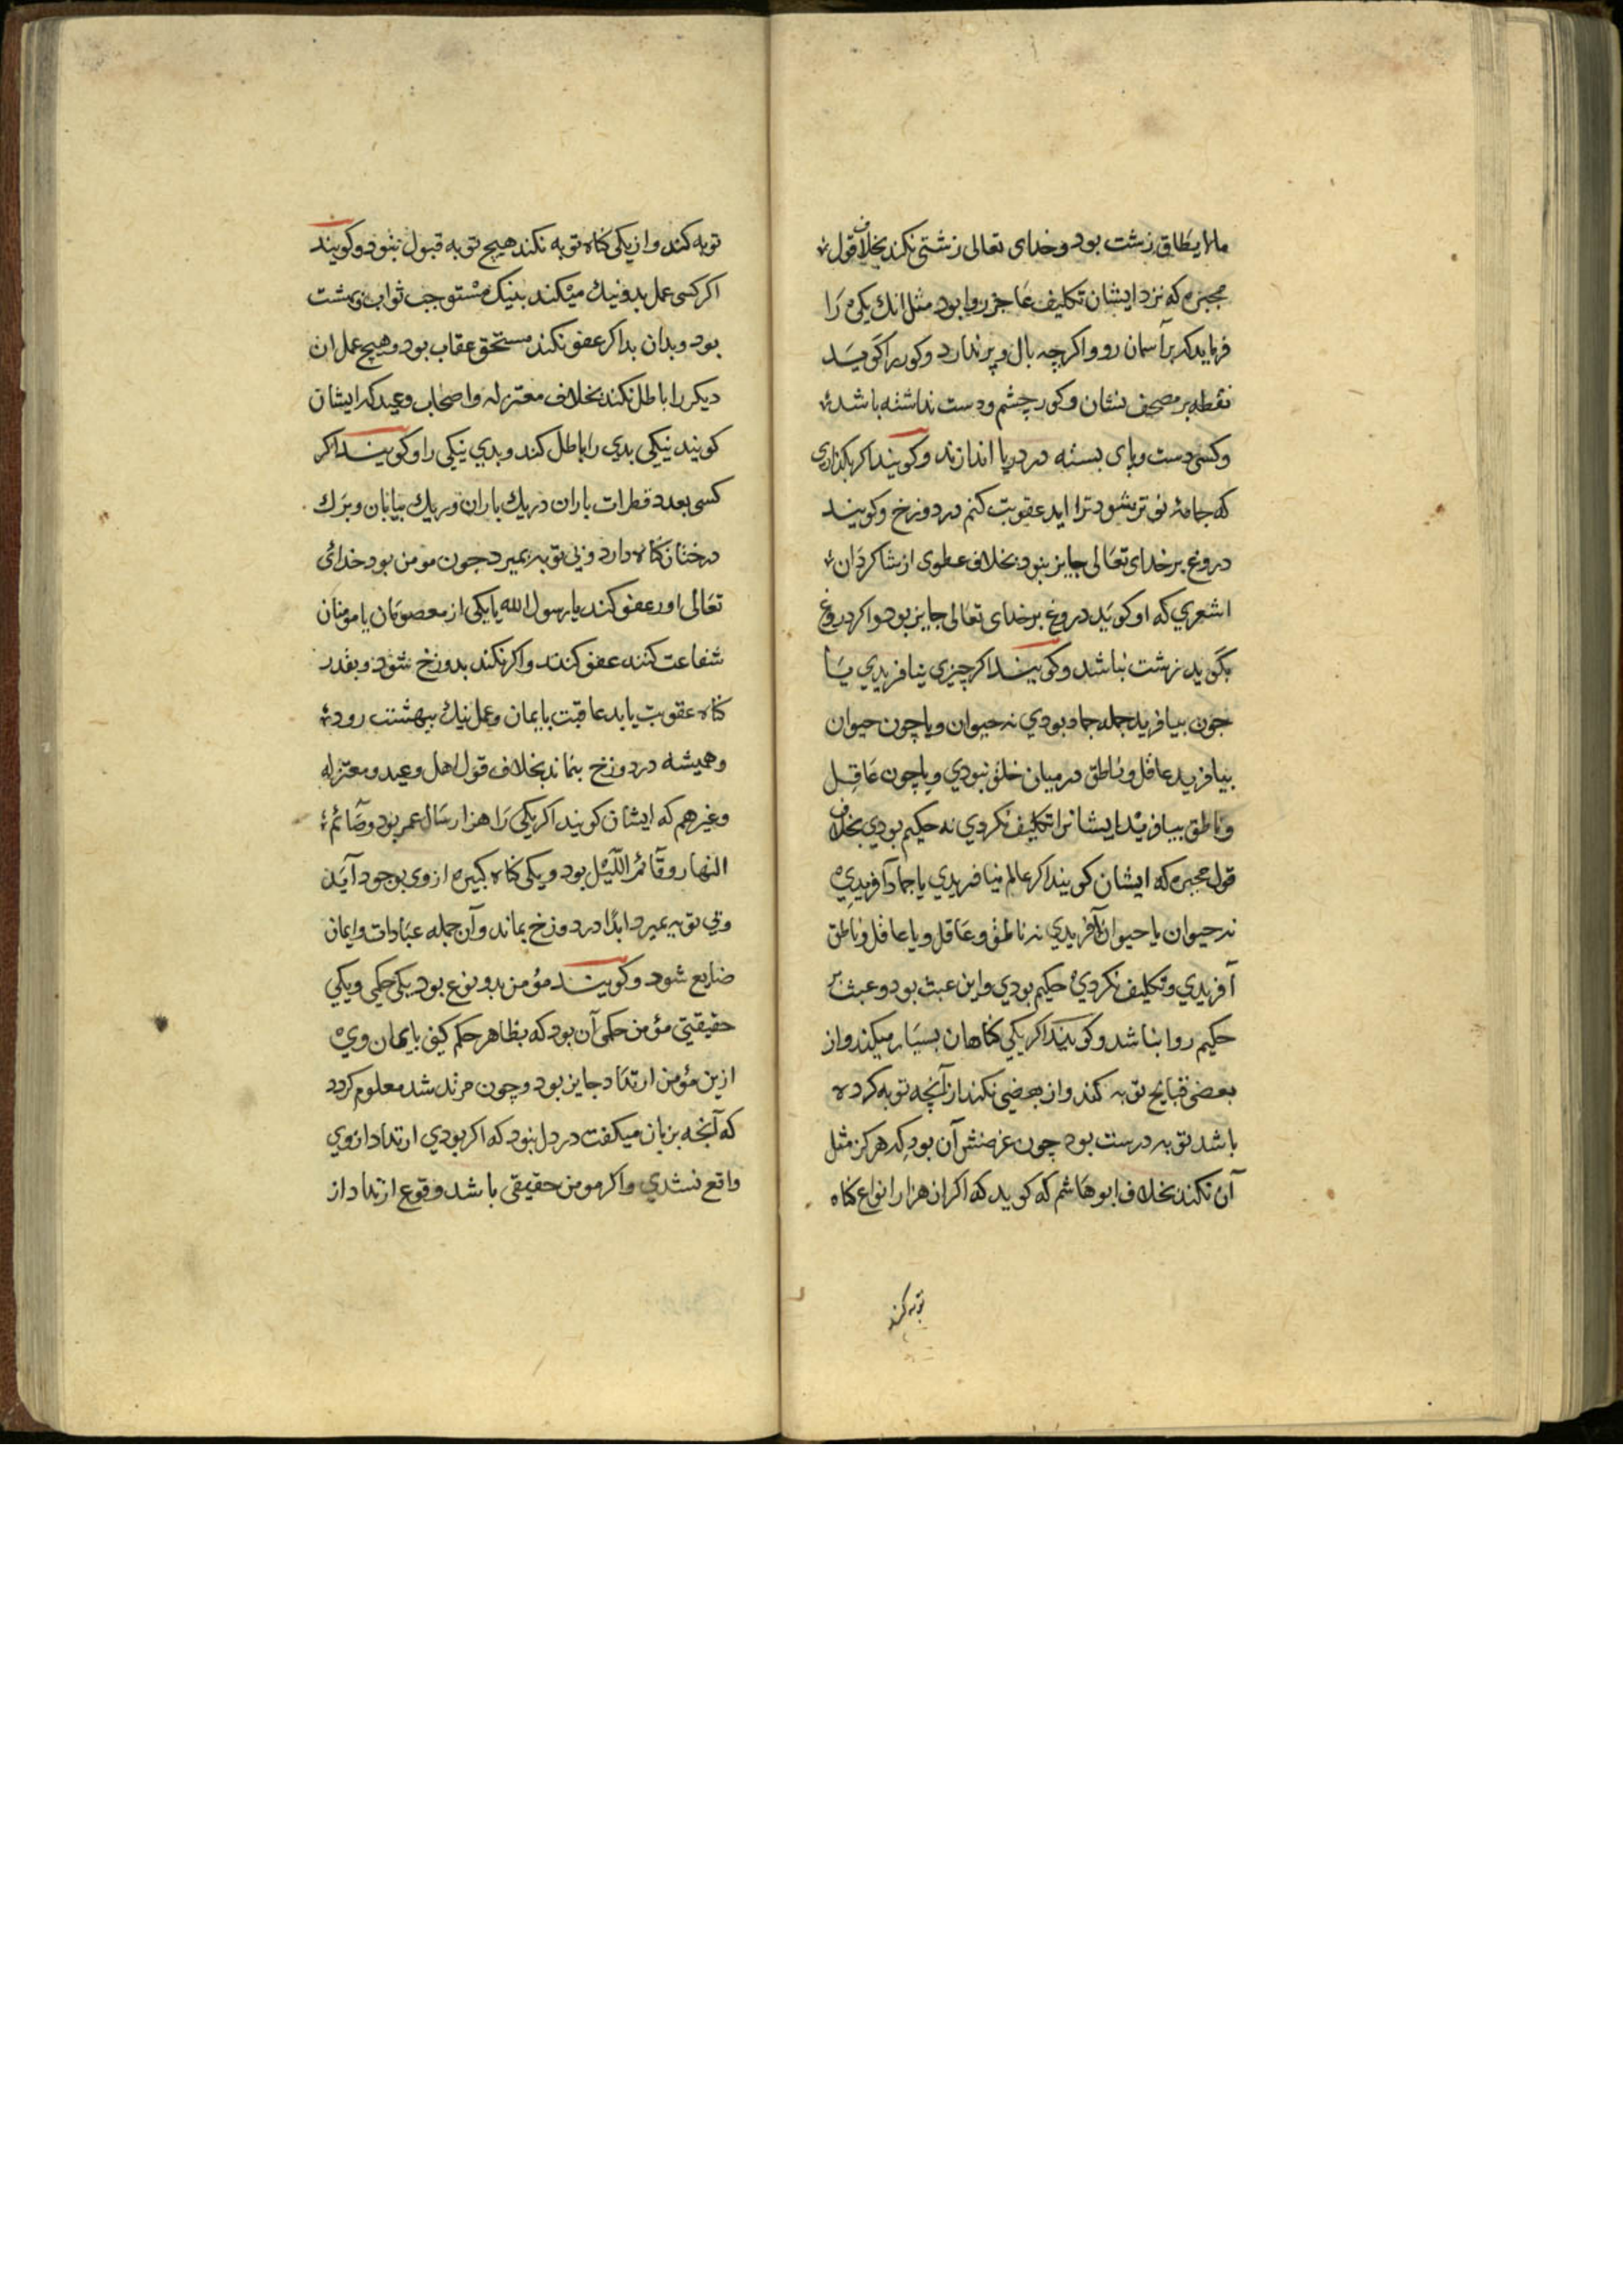 مالایطاق زشت بود و خدای تعالی زشتی نکند بخلاف قول
مجبره که نزد ایشان تکلیف عاجز روا بود مثل انك یکی را
فرماید که بر آسمان رو و اکرچه بال و پر ندارد و کور را کوید
نقطه بر مصحف نشان و کور چشم و دست نداشته باشد
و کسی دست و پای بسته در دریا اندازند و کویند اکر بکذاری
که جامهٔ تو تر شود ترا ابد عقوبت کنم در دوزخ و کویند
دروغ بر خدای تعالی جایز نبود بخلاف عطوی از شاکردان
اشعری که او کوید دروغ بر خدای تعالی جایز بود و اکر دروغ
بکوید زشت نباشد و کویند اکر چیزی نیافریدی یا
چون بیافرید جمله جماد بودی نه حیوان و یا چون حیوان
بیافرید عاقل و ناطق در میان خلق نبودی و یا چون عاقل
و ناطق بیافرید ایشانرا تکلیف نکردی نه حکیم بودی بخلاف
قول مجبره که ایشان کویند اکر عالم نیافریدی یا جماد آفریدی
نه حیوان یا حیوان آفریدی نه ناطق و عاقل و یا عاقل و ناطق
آفریدی و تکلیف نکردی حکیم بودی و این عبث بود و عبث بر
حکیم روا نباشد و کویند اکر یکی کناهان بسیار میکند و از
بعضی قبایح توبه کند و از بعضی نکند از آنچه توبه کرده
باشد توبه درست بود چون غرضش آن بود که هرکز مثل
آن نکند بخلاف ابوهاشم که کوید که اکر از هزار انواع کناه
توبه کند
توبه کند و از یکی کناه توبه نکند هیچ توبه قبول نبود و کویند
اکر کسی عمل بد و نیك میکند بنیك مستوجب ثواب و بهشت
بود و بدان بد اکر عفو نکند مستحق عقاب بود و هیچ عمل ان
دیکر را باطل نکند بخلاف معتزله و اصحاب وعید که ایشان
کویند نیکی بدی را باطل کند و بدی نیکی را و کویند اکر
کسی بعدد قطرات باران در یك باران و ریك بیابان و برك
درختان کناه دارد و بی توبه بمیرد چون مومن بود خدای
تعالی اورا عفو کند یا رسول الله یا یکی از معصومان یا مومنان
شفاعت کنند عفو کنند و اکر نکند بدوزخ شود و بقدر
کناه عقوبت یابد عاقبت بایمان و عمل نیك ببهشت رود
و همیشه در دوزخ بنماند بخلاف قول اهل وعید و معتزله
و غیرهم که ایشان کویند اکر یکی را هزار سال عمر بود و صائم
النهار و قائم اللیل بود و یکی کناه کبیره از وی بوجود آید
و بی توبه بمیرد ابدا در دوزخ بماند و آن جمله عبادات و ایمان
ضایع شود و کویند مؤمن بدو نوع بود یکی حکمی و یکی
حقیقیتی مؤمن حکمی آن بود که بظاهر حکم کنی بایمان وی
ازین مؤمن ارتداد جایز بود و چون مرتد شد معلوم کردد
که آنچه بزبان میکفت در دل نبود که اکر بودی ارتداد از وی
واقع نشدی و اکر مومن حقیقی باشد وقوع ارتداد از